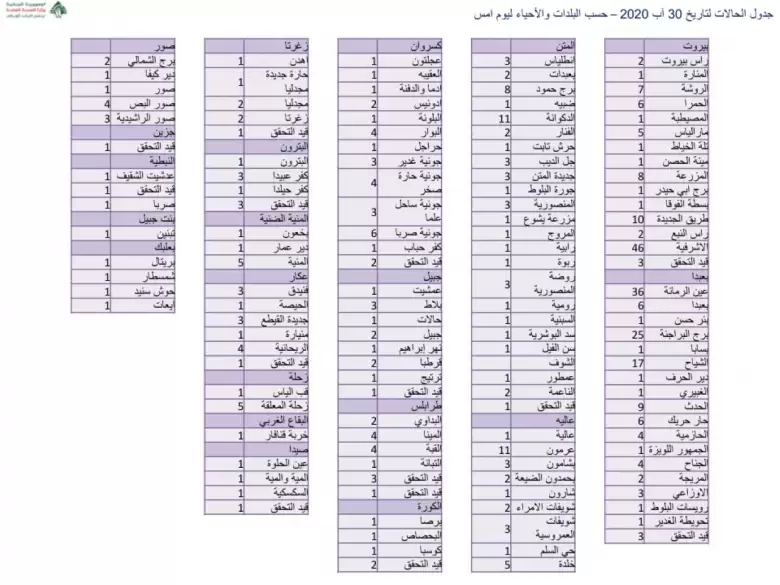 جدول الحالات لتاريخ 30 آب 2020 – حسب البلدات والأحياء ليوم امس
الجمهورية اللبنانية
وزارة الصحة العامة
بيروت
راس بيروت 2
المنارة 1
الروشة 7
الحمرا 6
المصيطبة 1
مارالياس 5
تلة الخياط 1
مينة الحصن 1
المزرعة 8
برج ابي حيدر 1
بسطة الفوقا 1
طريق الجديدة 10
راس النبع 2
الاشرفية 46
قيد التحقق 3
بعبدا
عين الرمانة 36
بعبدا 6
بئر حسن 1
برج البراجنة 25
بسابا 1
الشياح 17
دير الحرف 1
الغبيري 1
الحدث 9
حار حريك 6
الحازمية 4
الجمهور اللويزة 1
الجناح 4
المريجة 2
الاوزاعي 3
رويسات البلوط 1
تحويطة الغدير 1
قيد التحقق 3
المتن
انطلياس 3
بعبدات 2
برج حمود 8
ضبيه 1
الدكوانة 11
الفنار 2
حرش تابت 1
جل الديب 3
جديدة المتن 3
جورة البلوط 1
المنصورية 3
مزرعة يشوع 1
المروج 1
رابية 1
ربوة 1
روضة المنصورية 3
رومية 1
السبتية 1
سد البوشرية 1
سن الفيل 1
الشوف
عمطور 1
الناعمة 2
قيد التحقق 1
عاليه
عالية 1
عرمون 11
بشامون 3
بحمدون الضيعة 2
شارون 1
شويفات الامراء 2
شويفات العمروسية 3
حي السلم 1
خلدة 5
كسروان
عجلتون 1
العقيبه 1
ادما والدفنة 1
ادونيس 2
البلونة 1
البوار 4
حراجل 1
جونية غدير 3
جونية حارة صخر 4
جونية ساحل علما 3
جونية صربا 6
كفر حباب 1
قيد التحقق 2
جبيل
عمشيت 1
بلاط 3
حالات 1
جبيل 2
نهر إبراهيم 1
قرطبا 2
ترتيج 1
قيد التحقق 1
طرابلس
البداوي 2
المينا 4
القبة 4
التبانة 1
قيد التحقق 3
قيد التحقق 1
الكورة
برصا 1
البحصاص 1
كوسبا 1
قيد التحقق 2
زغرتا
اهدن 1
حارة جديدة مجدليا 1
مجدليا 2
زغرتا 2
قيد التحقق 1
البترون
البترون 1
كفر عبيدا 3
كفر حيلدا 1
قيد التحقق 3
المنية الضنية
بخعون 1
دير عمار 1
المنية 5
عكار
فنيدق 3
الحيصة 1
جديدة القيطع 3
منيارة 1
الريحانية 4
قيد التحقق 1
زحلة
قب الياس 1
زحلة المعلقة 5
البقاع الغربي
خربة قنافار 1
صيدا
عين الحلوة 1
المية والمية 1
السكسكية 1
قيد التحقق 1
صور
برج الشمالي 2
دير كيفا 1
صور 1
صور البص 4
صور الراشيدية 3
جزين
قيد التحقق 1
النبطية
عدشيت الشقيف 1
قيد التحقق 1
صربا 1
بنت جبيل
تبنين 1
بعلبك
بريتال 1
شمسطار 1
حوش سنيد 1
ايعات 1